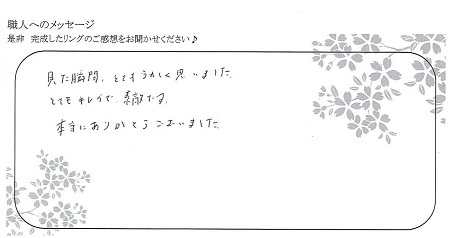 職人へのメッセージ
是非 完成したリングのご感想をお聞かせください♪
見た瞬間、とてもうれしく思いました。
とてもキレイで素敵です。
本当にありがとうございました。